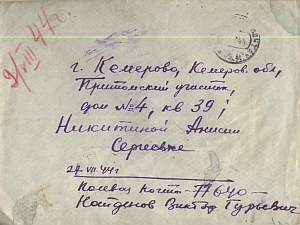 2/VIII 44г.
г. Кемерово, Кемеров. обл,
Притомский участок,
дом №4, кв 39;
Никитиной Анисии
Сергеевне
27-VII-44г.
Полевая почта - 77640 -
Найденов Виктор Гурьевич